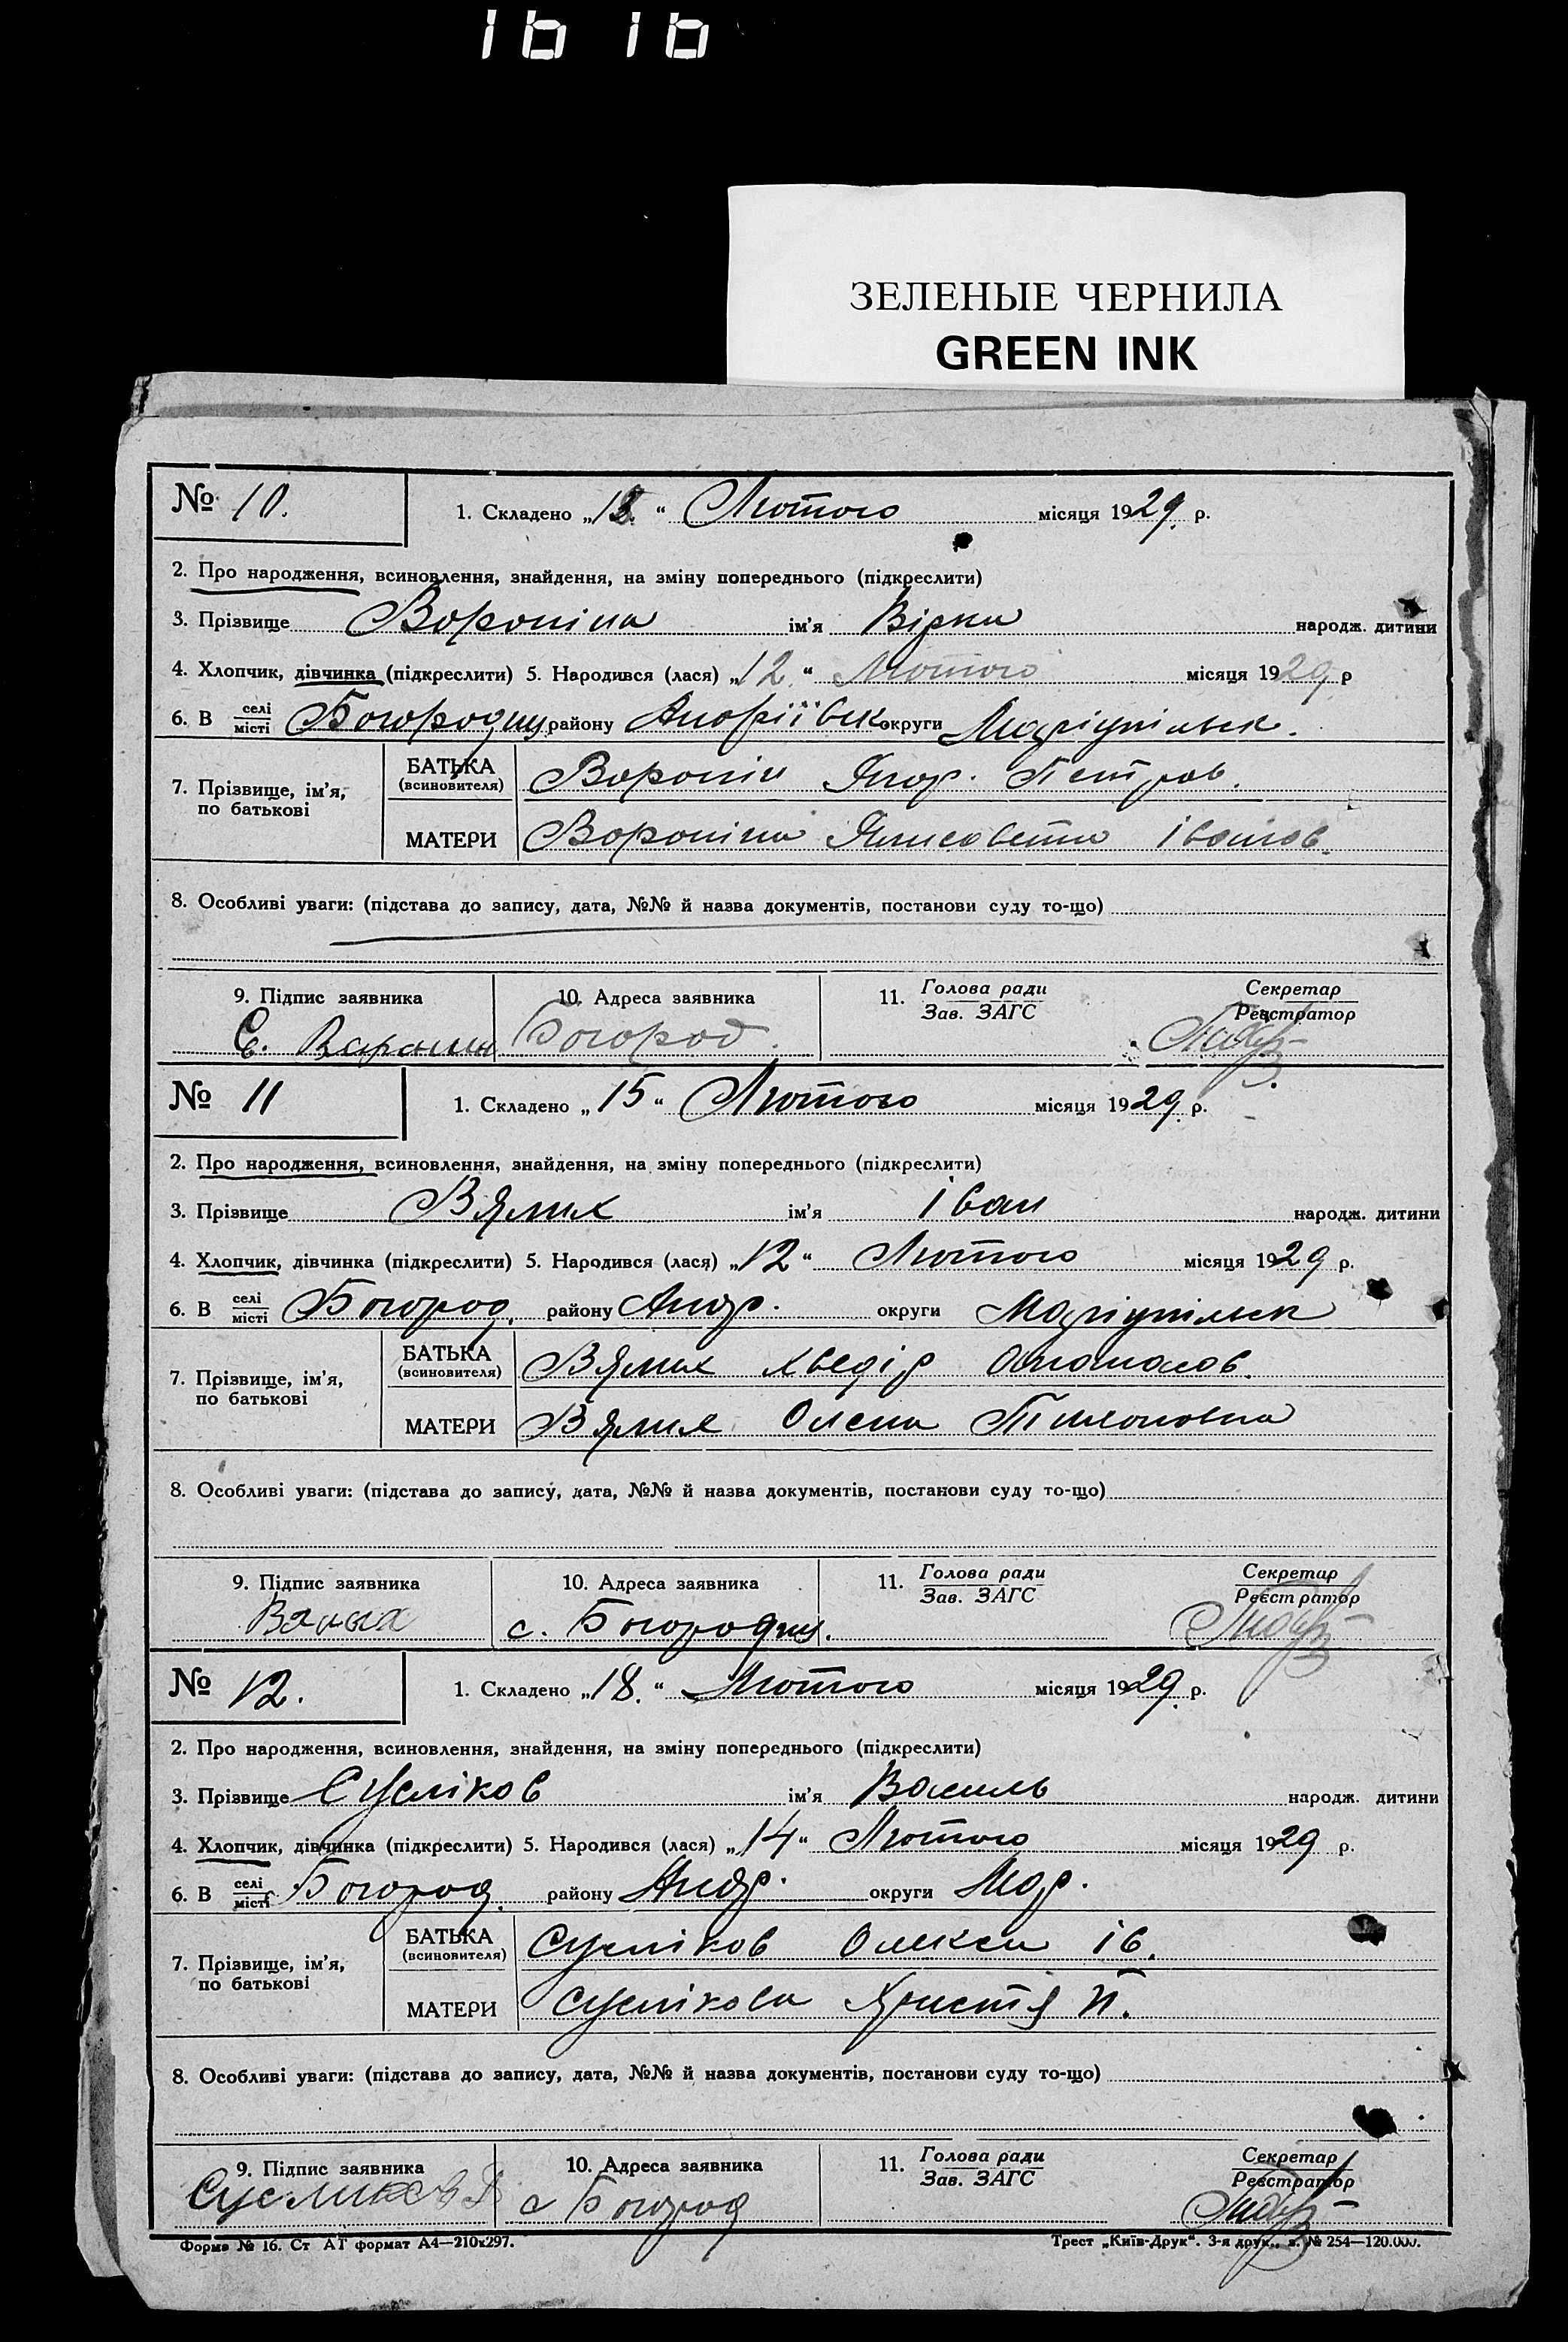 1616
ЗЕЛЕНЫЕ ЧЕРНИЛА
GREEN INK
№ 10. 1. Складено „ “ Лютого місяця 1929. р.
2. Про народження, всиновлення, знайдення, на зміну попереднього (підкреслити)
3. Прізвище Вороніна ім'я Вірка народж. дитини
4. Хлопчик, дівчинка (підкреслити) 5. Народився (лася) „12.“ Лютого місяця 1929 р
6. В селі місті Богородиц. району Андріївськ округи Маріупільськ.
7. Прізвище, ім'я, по батькові БАТЬКА (всиновителя) Воронін Петров.
МАТЕРИ Вороніна Єлисавета Іванов.
8. Особливі уваги: (підстава до запису, дата, №№ й назва документів, постанови суду то-що)
9. Підпис заявника 10. Адреса заявника 11. Голова ради Зав. ЗАГС Секретар Реєстратор
Є. Варанин Богород.
№ 11 1. Складено „15“ Лютого місяця 1929. р.
2. Про народження, всиновлення, знайдення, на зміну попереднього (підкреслити)
3. Прізвище Вялих ім'я Іван народж. дитини
4. Хлопчик, дівчинка (підкреслити) 5. Народився (лася) „12“ Лютого місяця 1929 р.
6. В селі місті Богород. району Андр. округи Маріупільськ
7. Прізвище, ім'я, по батькові БАТЬКА (всиновителя) Вялих Хведір Опанасов.
МАТЕРИ Вялих Олена Тихоновна
8. Особливі уваги: (підстава до запису, дата, №№ й назва документів, постанови суду то-що)
9. Підпис заявника 10. Адреса заявника 11. Голова ради Зав. ЗАГС Секретар Реєстратор
Вялых с. Богородиц.
№ 12. 1. Складено „18.“ Лютого місяця 1929. р.
2. Про народження, всиновлення, знайдення, на зміну попереднього (підкреслити)
3. Прізвище Сусліков ім'я Василь народж. дитини
4. Хлопчик, дівчинка (підкреслити) 5. Народився (лася) „14“ Лютого місяця 1929 р.
6. В селі місті Богород. району Андр. округи Мар.
7. Прізвище, ім'я, по батькові БАТЬКА (всиновителя) Сусліков Олекса Ів.
МАТЕРИ Суслікова Христя П.
8. Особливі уваги: (підстава до запису, дата, №№ й назва документів, постанови суду то-що)
9. Підпис заявника 10. Адреса заявника 11. Голова ради Зав. ЗАГС Секретар Реєстратор
Сусликов с Богород
Форма № 16. Ст АТ формат А4—210х297. Трест „Київ-Друк“. 3-я друк., з. № 254—120.000.